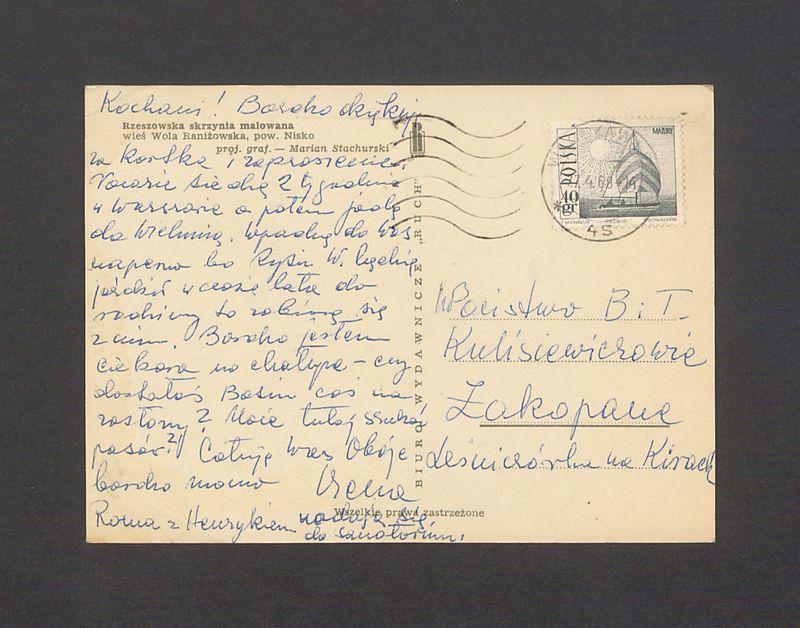 Kochani! Bardzo dziękuję
Rzeszowska skrzynia malowana
wieś Wola Raniżowska, pow. Nisko
proj. graf. — Marian Stachurski
za kartkę i zaproszenie.
się 2 tygodnie
w Warszawie a potem jadę
do Wielunia. Wpadnę do Was
napewno bo Rysiu W. będzie
jeździł w czasie lata do
rodziny to zabiorę się
z nim. Bardzo jestem
ciekawa na chałupę – czy
dostałaś Basiu coś na
zasłony? Może tutaj szukać
pasów? Całuję Was Oboje
bardzo mocno Irena
Roma z Henrykiem nadają się
do sanatorium.
Wszelkie prawa zastrzeżone
BIURO WYDAWNICZE „RUCH"
R
POLSKA
MAZURY
40 gr
4.68
45
B i T.
Kulisiewiczowie
Zakopane
Leśniczówka na Kirach